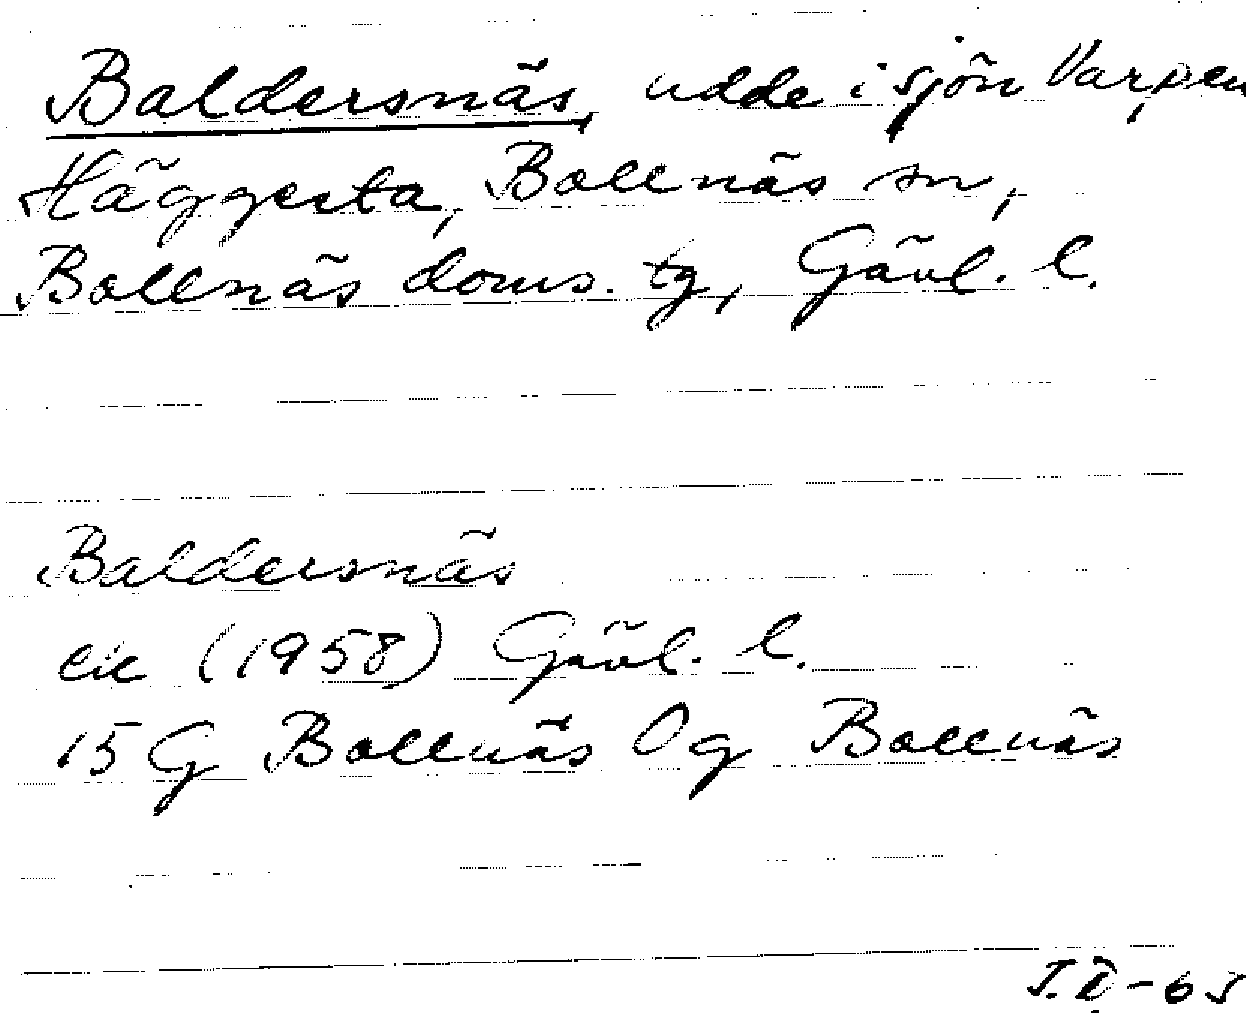 Baldersnäs, udde i sjön Varpen
Häggesta, Bollnäs sn,
Bollnäs doms. tg, Gävl. l.
Baldersnäs
ek (1958) Gävl. l.
15 G Bollnäs Og Bollnäs